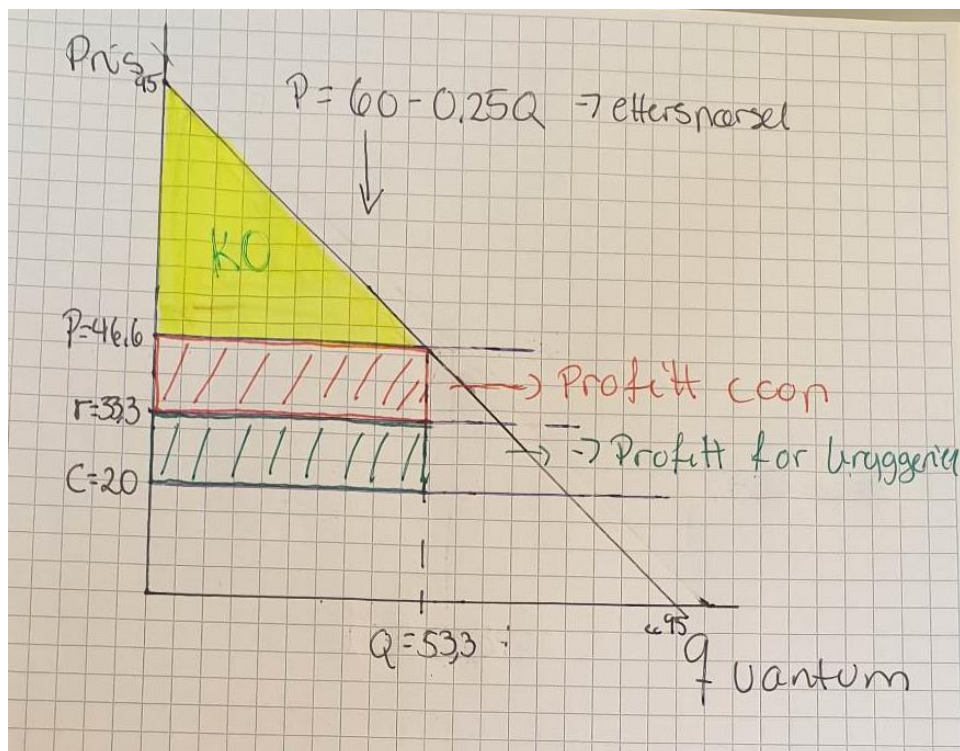 Pris
45
P = 60 - 0.25Q → etterspørsel
KO
P=46,6
→ Profitt coop
r=33,3
→ → Profitt for bryggeriet
C=20
Q = 53,3
95
quantum